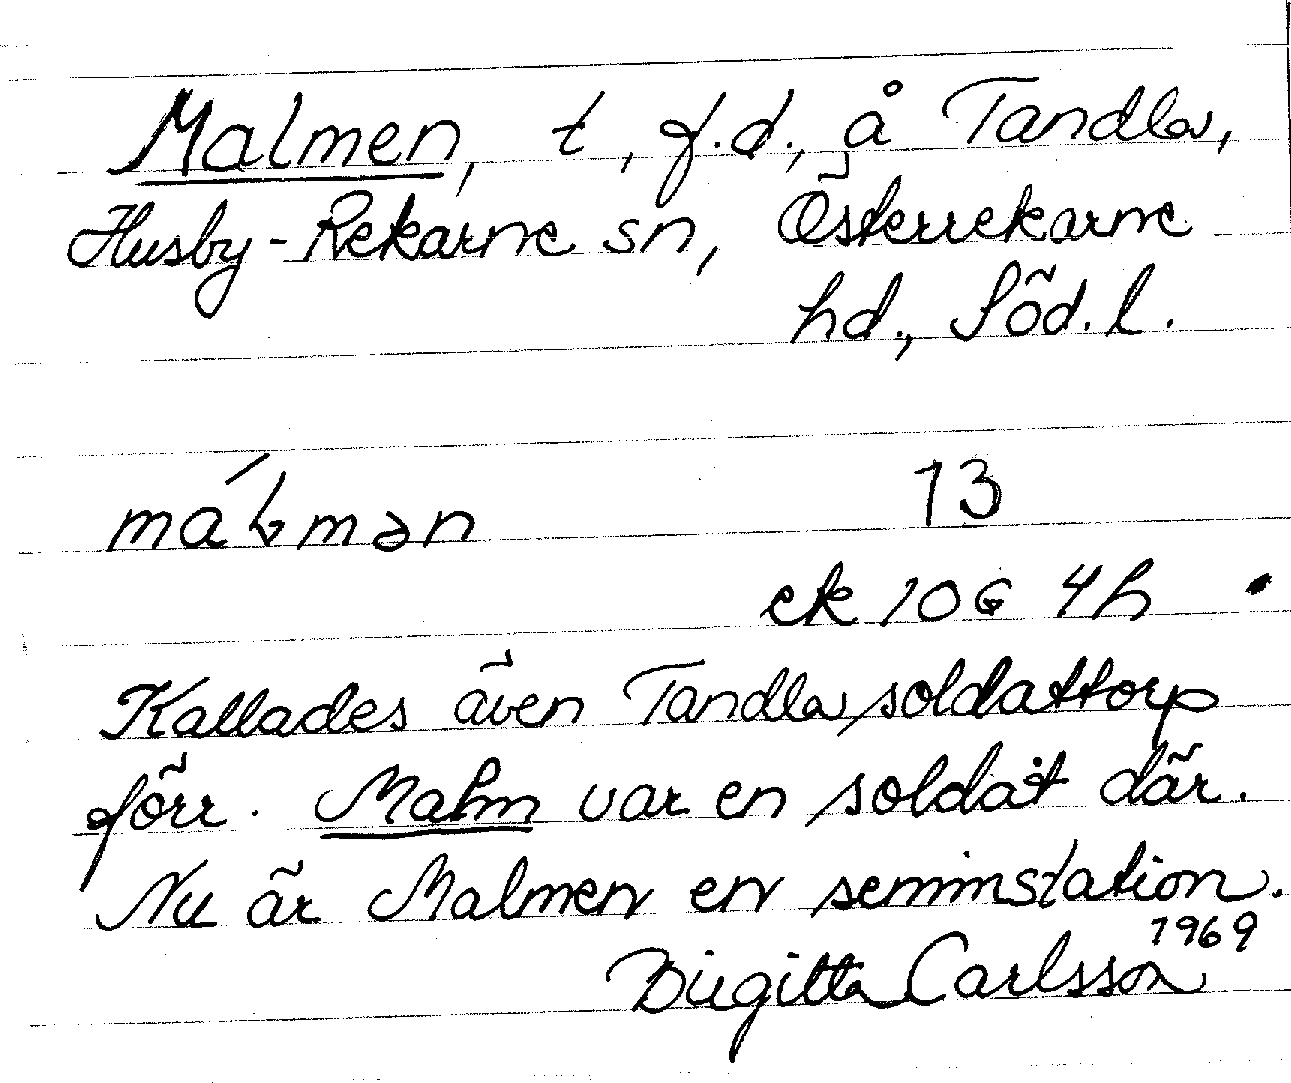 Malmen, t, f.d., å Tandla,
Husby-Rekarne sn, Österrekarne
hd., Söd. l.
má mən 13
ek 10G 4h
Kallades även Tandla soldattorp
förr. Malm var en soldat där.
Nu är Malmen en seminstation.
1969
Birgitta Carlsson